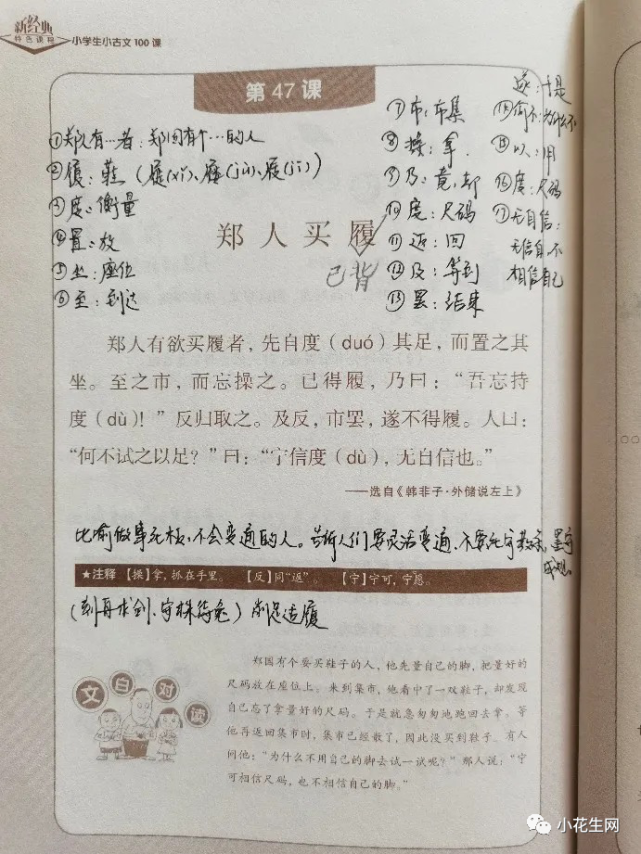 新经典
特色课程
小学生小古文100课
第47课
①郑人有…者：郑国有个…的人
②履：鞋（屐(jī)、屦(jù)、屐(jī)）
③度：衡量
④置：放
⑤坐：座位
⑥至：到达
⑦市：市集
⑧操：拿
⑨乃：竟，却
⑩度：尺码
⑪返：回
⑫及：等到
⑬罢：结束
遂：于是
⑭何不：为什么不
⑮以：用
⑯度：尺码
⑰无自信：
无信自 不
相信自己
郑人买履
已背
郑人有欲买履者，先自度（duó）其足，而置之其
坐。至之市，而忘操之。已得履，乃曰：“吾忘持
度（dù）！”反归取之。及反，市罢，遂不得履。人曰：
“何不试之以足？”曰：“宁信度（dù），无自信也。”
——选自《韩非子·外储说左上》
比喻做事死板，不会变通的人。告诉人们要灵活变通，不要死守教条，墨守
成规
★注释 【操】拿，抓在手里。 【反】同“返”。 【宁】宁可，宁愿。
（刻舟求剑、守株待兔）削足适履
文白对读
郑国有个要买鞋子的人，他先量自己的脚，把量好的
尺码放在座位上。来到集市，他看中了一双鞋子，却发现
自己忘了拿量好的尺码。于是就急匆匆地跑回去拿。等
他再返回集市时，集市已经散了，因此没买到鞋子。有人
问他：“为什么不用自己的脚去试一试呢？”那人说：“宁
可相信尺码，也不相信自己的脚。”
小花生网